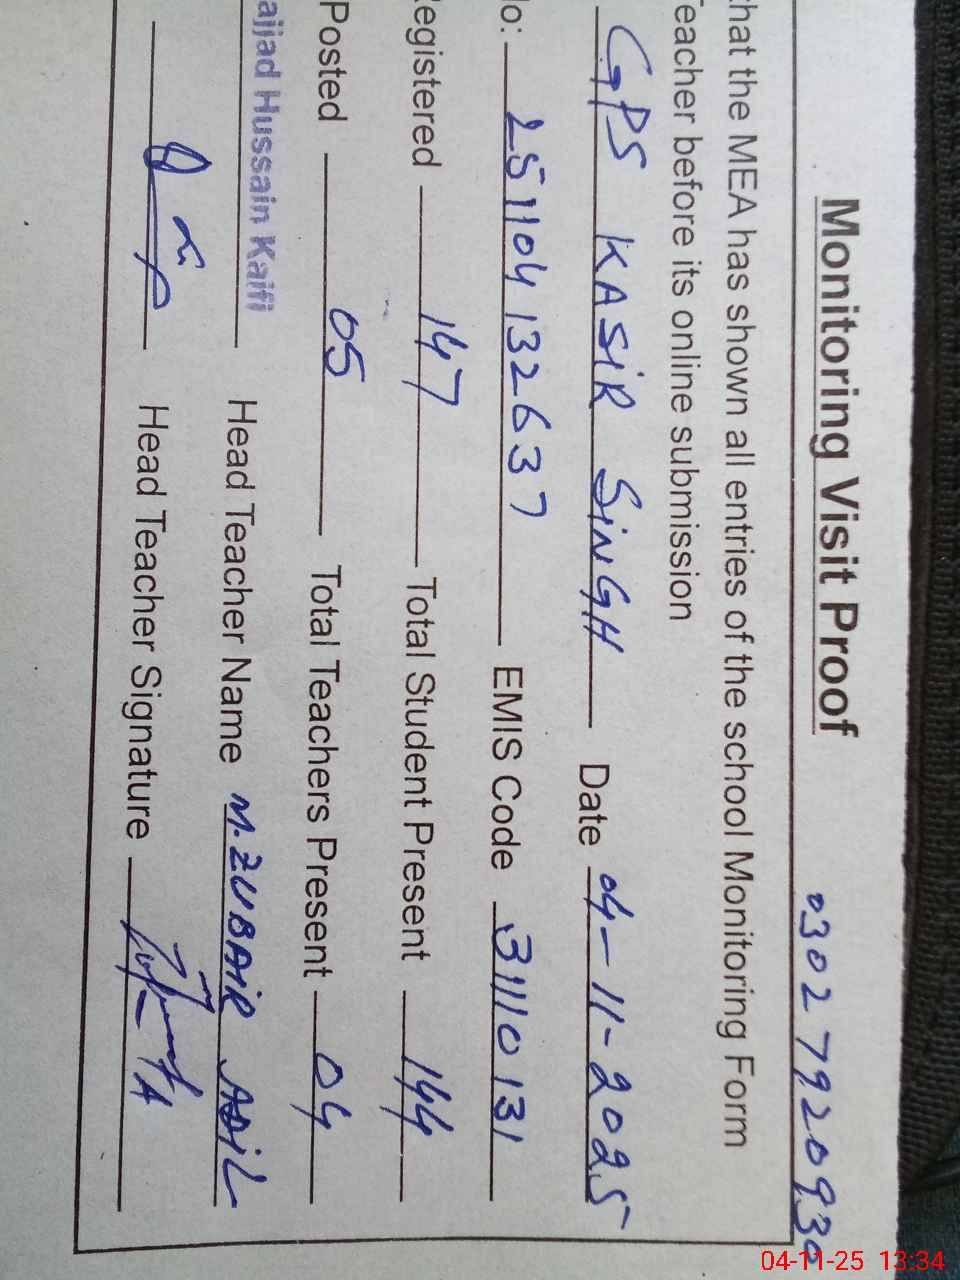 Monitoring Visit Proof
0302 7920930
that the MEA has shown all entries of the school Monitoring Form
Teacher before its online submission
GPS KASiR SiNGH Date 04-11-2025
No: 251104132637 EMIS Code 31110131
Registered 147 Total Student Present 144
Posted 05 Total Teachers Present 04
ajjad Hussain Kaifi Head Teacher Name M.ZUBAiR ADiL
Head Teacher Signature
04-11-25 13:34